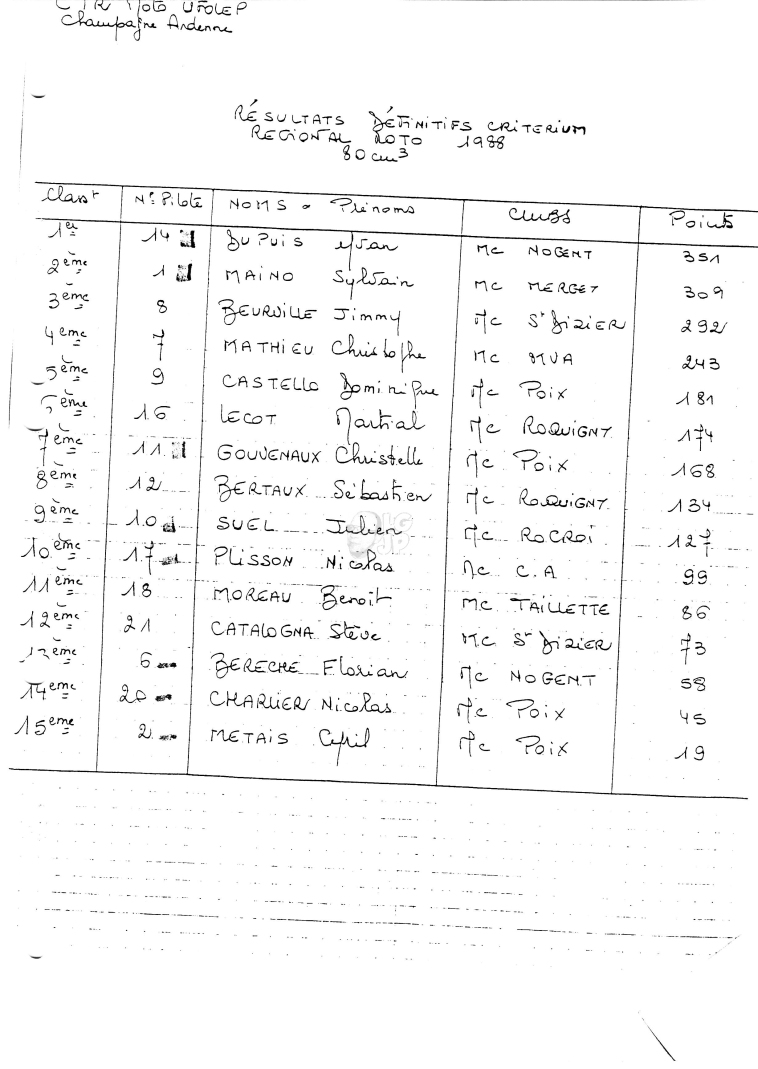 CTR Moto UFOLEP
Champagne Ardenne
RÉSULTATS DÉFINITIFS CRITERIUM
REGIONAL MOTO 1988
80 cm³
Classt N° Pilote NOMS - Prénoms CLUBS Points
1er 14 DUPUIS Yvan MC NOGENT 351
2ème 1 MAINO Sylvain MC MERGEY 309
3ème 8 BEURVILLE Jimmy MC St DIZIER 292
4eme 7 MATHIEU Christophe MC MVA 243
5ème 9 CASTELLO Dominique MC POIX 181
6ème 16 LECOT Martial MC ROQUIGNY 174
7ème 11 GOUVENAUX Christelle MC POIX 168
8ème 12 BERTAUX Sébastien MC ROQUIGNY 134
9ème 10 SUEL Julien MC ROCROI 127
10ème 17 PLISSON Nicolas MC C.A 99
11ème 18 MOREAU Benoit MC TAILLETTE 86
12ème 21 CATALOGNA Stève MC St DIZIER 73
13ème 6 BERECHE Florian MC NOGENT 58
14eme 20 CHARLIER Nicolas MC POIX 45
15eme 2 METAIS Cyril MC POIX 19